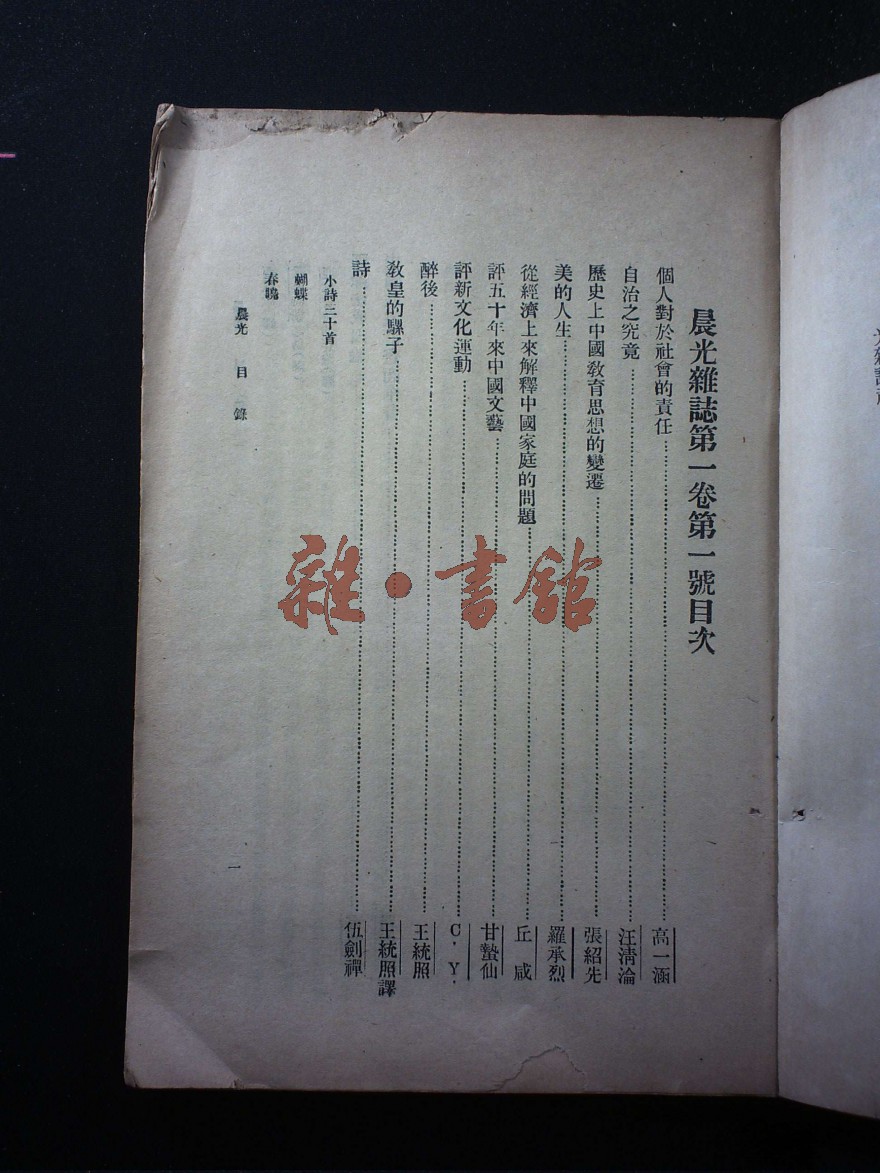 晨光雜誌第一卷第一號目次
個人對於社會的責任……高一涵
自治之究竟……汪淸淪
歷史上中國敎育思想的變遷……張紹先
美的人生……羅承烈
從經濟上來解釋中國家庭的問題……丘咸
評五十年來中國文藝……甘蟄仙
評新文化運動……C.Y.
醉後……王統照
敎皇的騾子……王統照譯
詩……伍劍禪
小詩三十首
蝴蝶
春曉
晨光 目錄
一
雜·書館